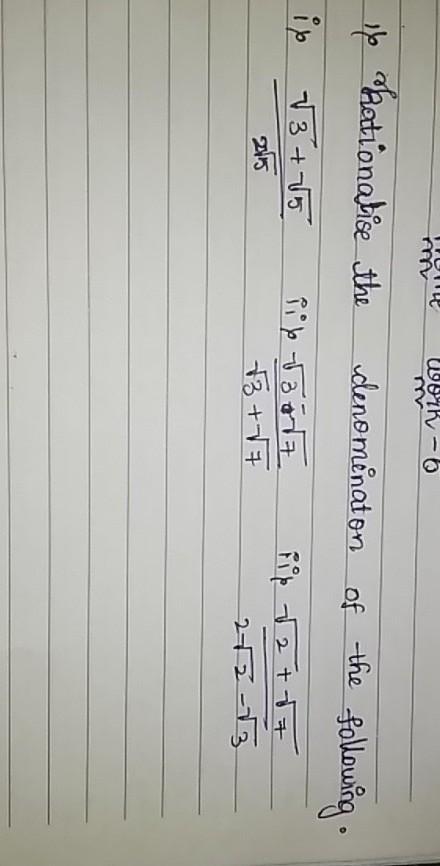 work - 6
1) Rationalise the denominaton of the following.
i) √3 + √5 / 2√5 ii) √3 - √7 / √3 + √7 iii) √2 + √7 / 2√2 - √3